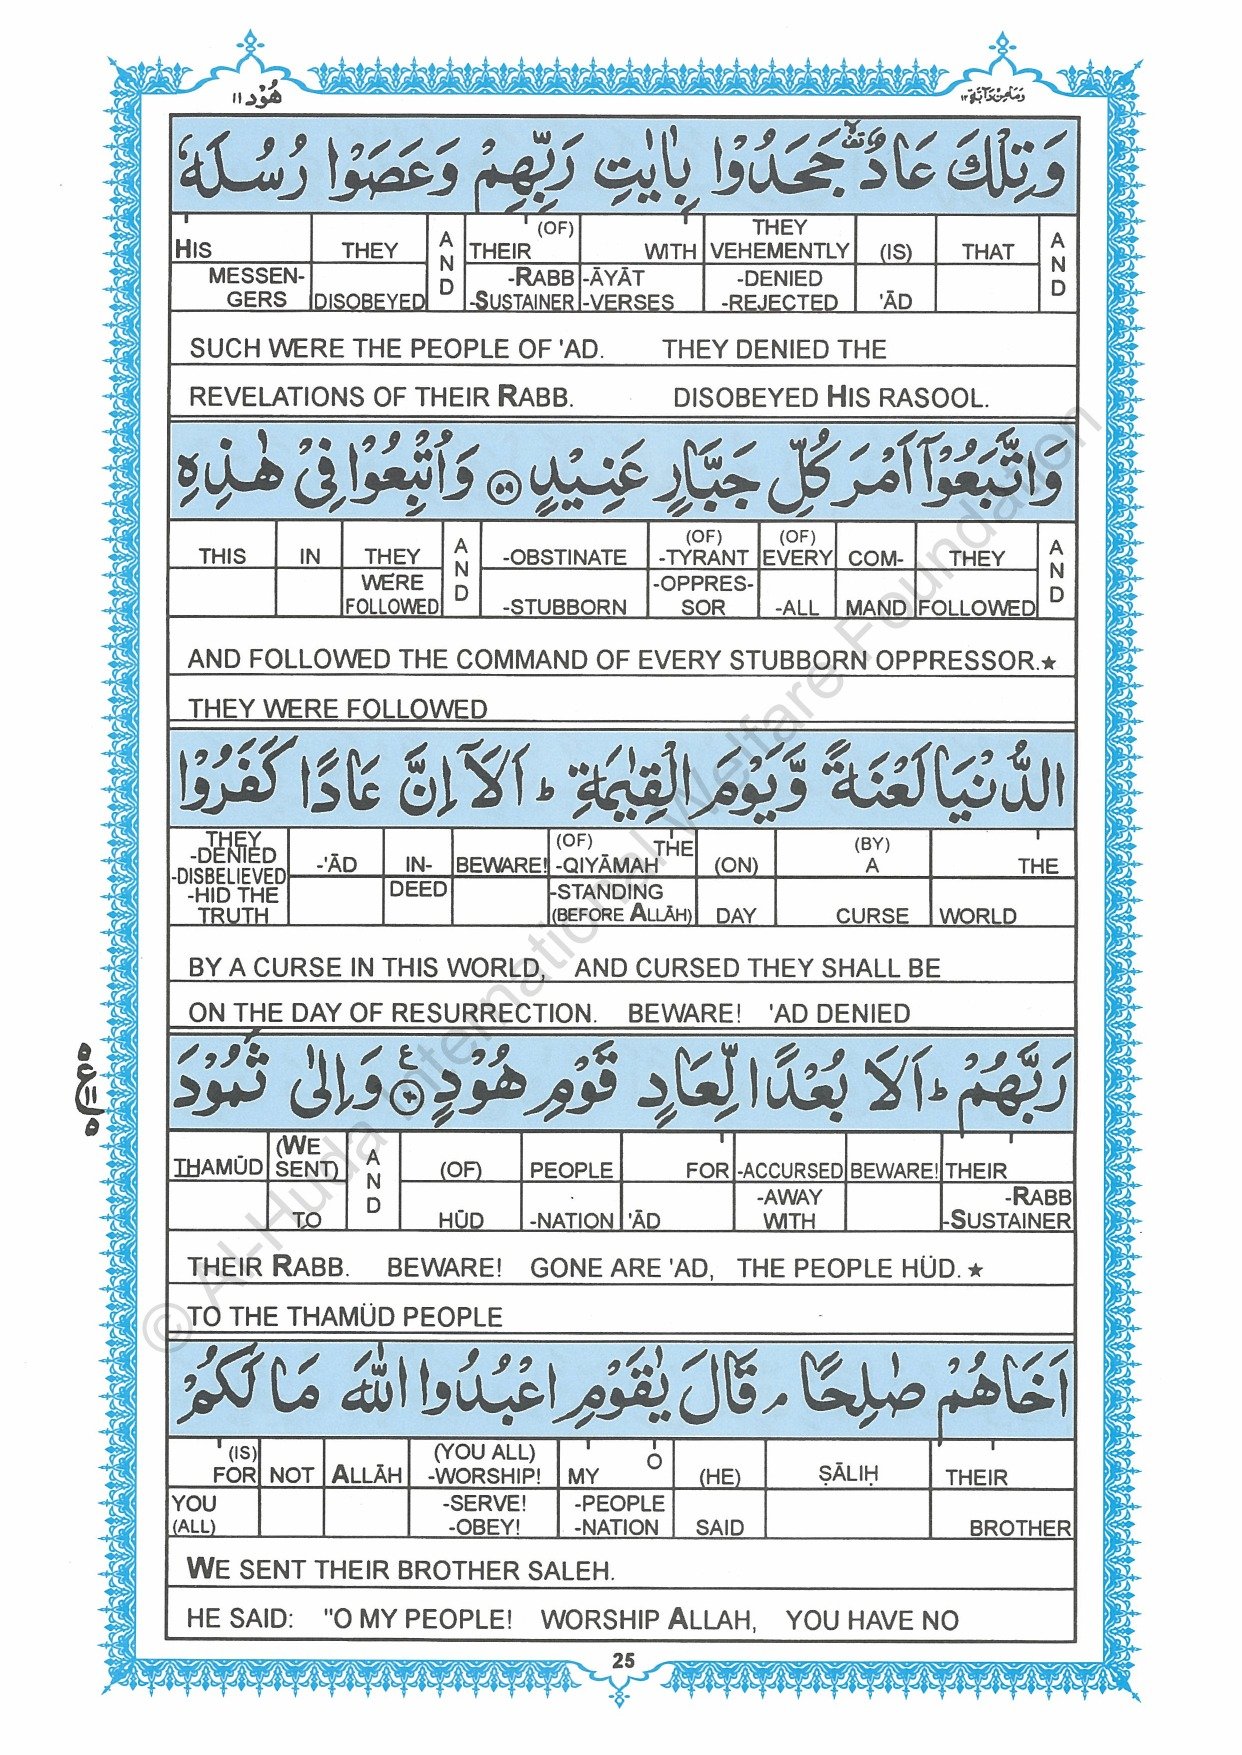 هُوْد ١١
وَمَا مِنْ دَآبَّةٍ ١٢
وَ تِلْكَ عَادٌ ۟ۙ جَحَدُوْا بِاٰيٰتِ رَبِّهِمْ وَ عَصَوْا رُسُلَهٗ
HIS THEY AND THEIR (OF) WITH THEY VEHEMENTLY (IS) THAT AND
MESSENGERS DISOBEYED -RABB -SUSTAINER -ĀYĀT -VERSES -DENIED -REJECTED 'ĀD
SUCH WERE THE PEOPLE OF 'AD. THEY DENIED THE
REVELATIONS OF THEIR RABB. DISOBEYED HIS RASOOL.
وَ اتَّبَعُوْۤا اَمْرَ كُلِّ جَبَّارٍ عَنِيْدٍ ۝٥٩ وَ اُتْبِعُوْا فِيْ هٰذِهِ
THIS IN THEY AND -OBSTINATE (OF) -TYRANT (OF) EVERY COM- THEY AND
WERE FOLLOWED -STUBBORN -OPPRESSOR -ALL MAND FOLLOWED
AND FOLLOWED THE COMMAND OF EVERY STUBBORN OPPRESSOR.★
THEY WERE FOLLOWED
الدُّنْيَا لَعْنَةً وَّ يَوْمَ الْقِيٰمَةِ ؕ اَلَاۤ اِنَّ عَادًا كَفَرُوْا
THEY -DENIED -DISBELIEVED -HID THE TRUTH -'ĀD IN- BEWARE! (OF) THE -QIYĀMAH (ON) (BY) A THE
DEED -STANDING (BEFORE ALLĀH) DAY CURSE WORLD
BY A CURSE IN THIS WORLD, AND CURSED THEY SHALL BE
ON THE DAY OF RESURRECTION. BEWARE! 'AD DENIED
رَبَّهُمْ ؕ اَلَا بُعْدًا لِّعَادٍ قَوْمِ هُوْدٍ ۝٦٠ ع وَ اِلٰى ثَمُوْدَ
٥ ع ١١ ٥
THAMŪD (WE SENT) AND (OF) PEOPLE FOR -ACCURSED BEWARE! THEIR
TO HŪD -NATION 'ĀD -AWAY WITH -RABB -SUSTAINER
THEIR RABB. BEWARE! GONE ARE 'AD, THE PEOPLE HÜD.★
TO THE THAMÜD PEOPLE
اَخَاهُمْ صٰلِحًا ۘ قَالَ يٰقَوْمِ اعْبُدُوا اللّٰهَ مَا لَكُمْ
(IS) FOR NOT ALLĀH (YOU ALL) -WORSHIP! MY O (HE) ṢĀLIḤ THEIR
YOU (ALL) -SERVE! -OBEY! -PEOPLE -NATION SAID BROTHER
WE SENT THEIR BROTHER SALEH.
HE SAID: "O MY PEOPLE! WORSHIP ALLAH, YOU HAVE NO
25
© Al-Huda International Welfare Foundation